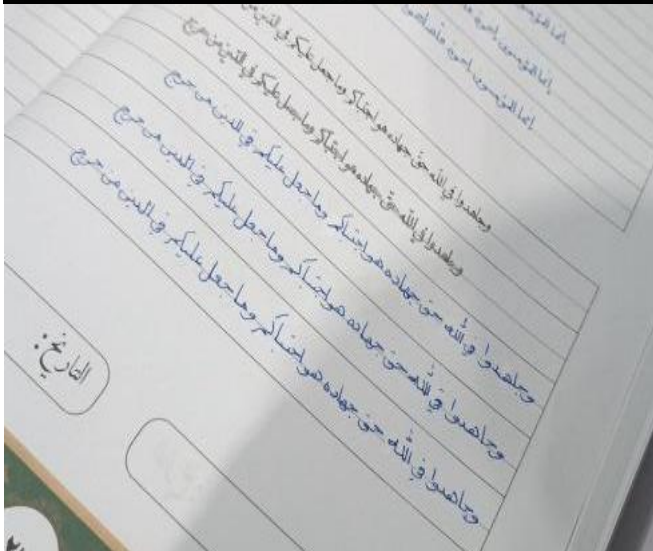 إنما المؤمنون إخوة فأصلحوا
إنما المؤمنون إخوة
إنما المؤمنون
وجاهدوا في الله حق جهاده هو اجتباكم وما جعل عليكم في الدين من
وجاهدوا في الله حق جهاده هو اجتباكم وما جعل عليكم في الدين من حرج
وجاهدوا في الله حق جهاده هو اجتباكم وما جعل عليكم في الدين من حرج
وجاهدوا في الله حق جهاده هو اجتباكم وما جعل عليكم في الدين من حرج
وجاهدوا في الله حق جهاده هو اجتباكم وما جعل عليكم في الدين من حرج
التاريخ: